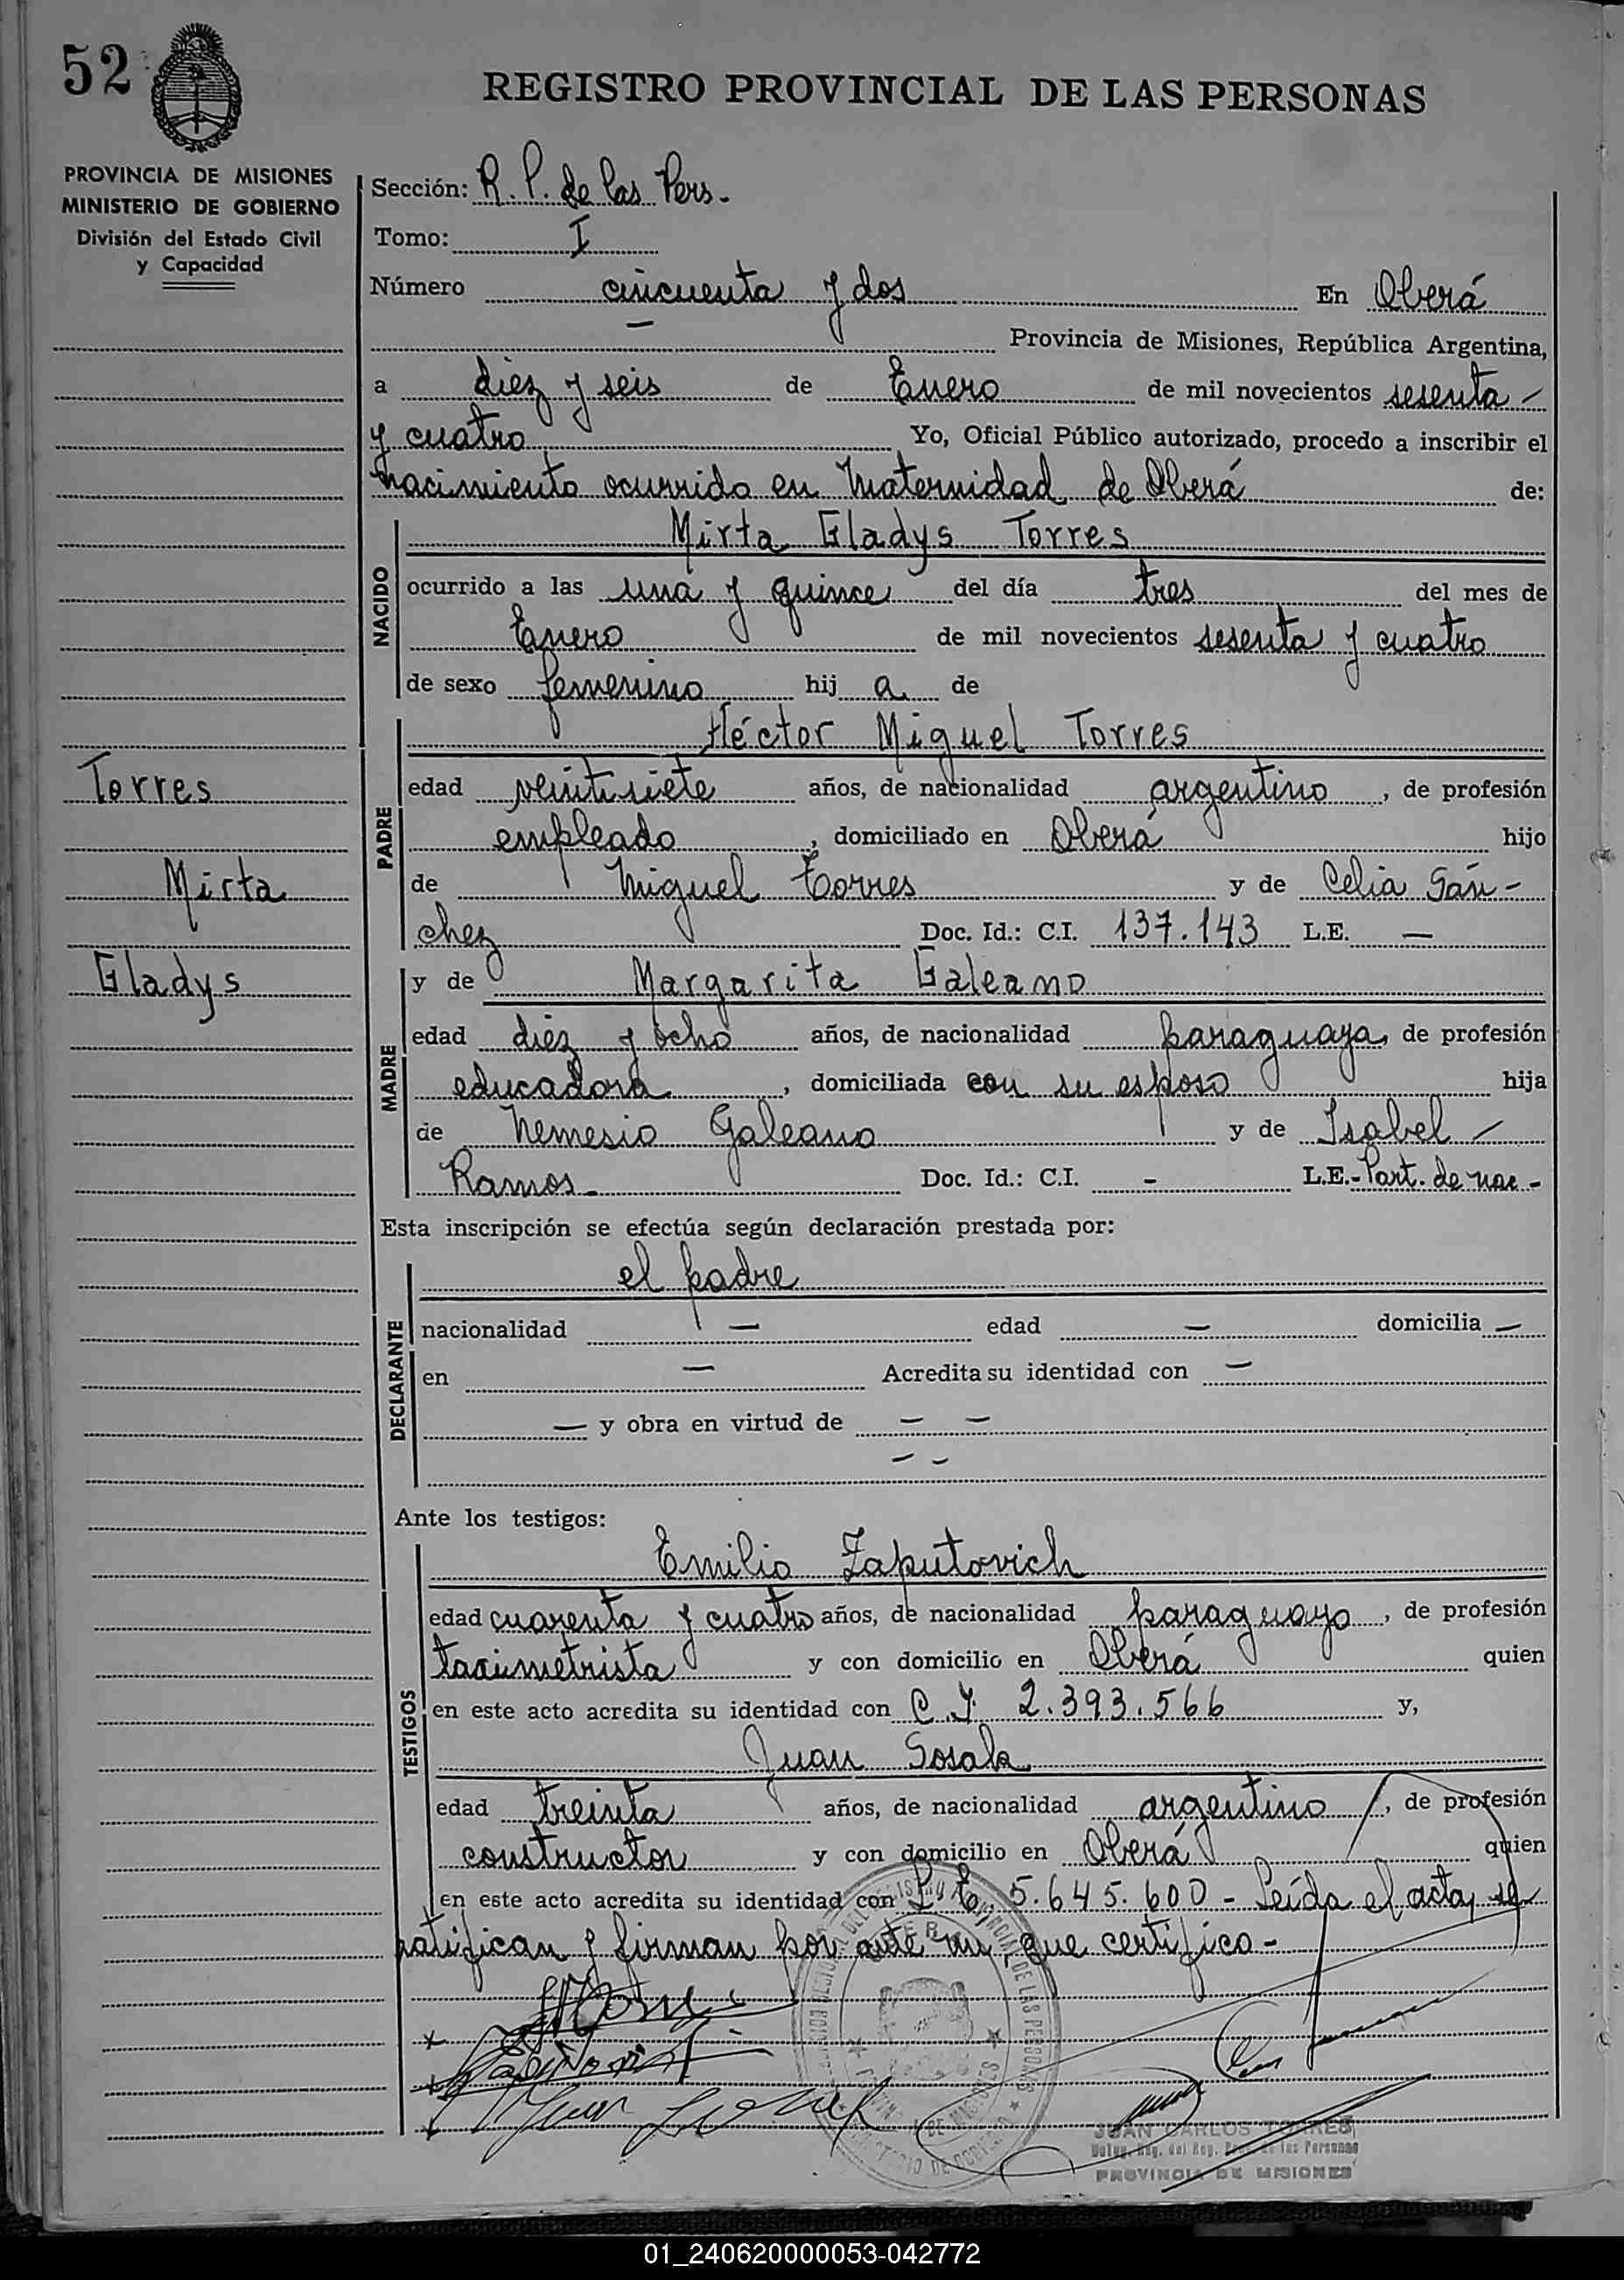 52
REGISTRO PROVINCIAL DE LAS PERSONAS
PROVINCIA DE MISIONES
MINISTERIO DE GOBIERNO
División del Estado Civil
y Capacidad
Sección: R. P. de las Pers.
Tomo: I
Número cincuenta y dos En Oberá
— Provincia de Misiones, República Argentina,
a diez y seis de Enero de mil novecientos sesenta -
y cuatro Yo, Oficial Público autorizado, procedo a inscribir el
nacimiento ocurrido en Maternidad de Oberá de:
NACIDO
Mirta Gladys Torres
ocurrido a las una y quince del día tres del mes de
Enero de mil novecientos sesenta y cuatro
de sexo femenino hij a de
PADRE
Héctor Miguel Torres
Torres
edad veintisiete años, de nacionalidad argentino, de profesión
empleado, domiciliado en Oberá hijo
Mirta
de Miguel Torres y de Celia Sán-
chez Doc. Id.: C.I. 137.143 L.E. —
Gladys
MADRE
y de Margarita Galeano
edad diez y ocho años, de nacionalidad paraguaya, de profesión
educadora, domiciliada con su esposo hija
de Nemesio Galeano y de Isabel -
Ramos.- Doc. Id.: C.I. - L.E.- Part. de nac-
Esta inscripción se efectúa según declaración prestada por:
DECLARANTE
el padre
nacionalidad — edad — domicilia —
en — Acredita su identidad con —
— y obra en virtud de — —
- -
Ante los testigos:
TESTIGOS
Emilio Zaputovich
edad cuarenta y cuatro años, de nacionalidad paraguayo, de profesión
taximetrista y con domicilio en Oberá quien
en este acto acredita su identidad con C. I. 2.393.566 y,
Juan Sosala
edad treinta años, de nacionalidad argentino, de profesión
constructor y con domicilio en Oberá quien
en este acto acredita su identidad con L. E. 5.645.600 - Leída el acta, se
ratifican y firman por ante mi que certifico -
JUAN CARLOS TORRES
PROVINCIA DE MISIONES
01_240620000053-042772